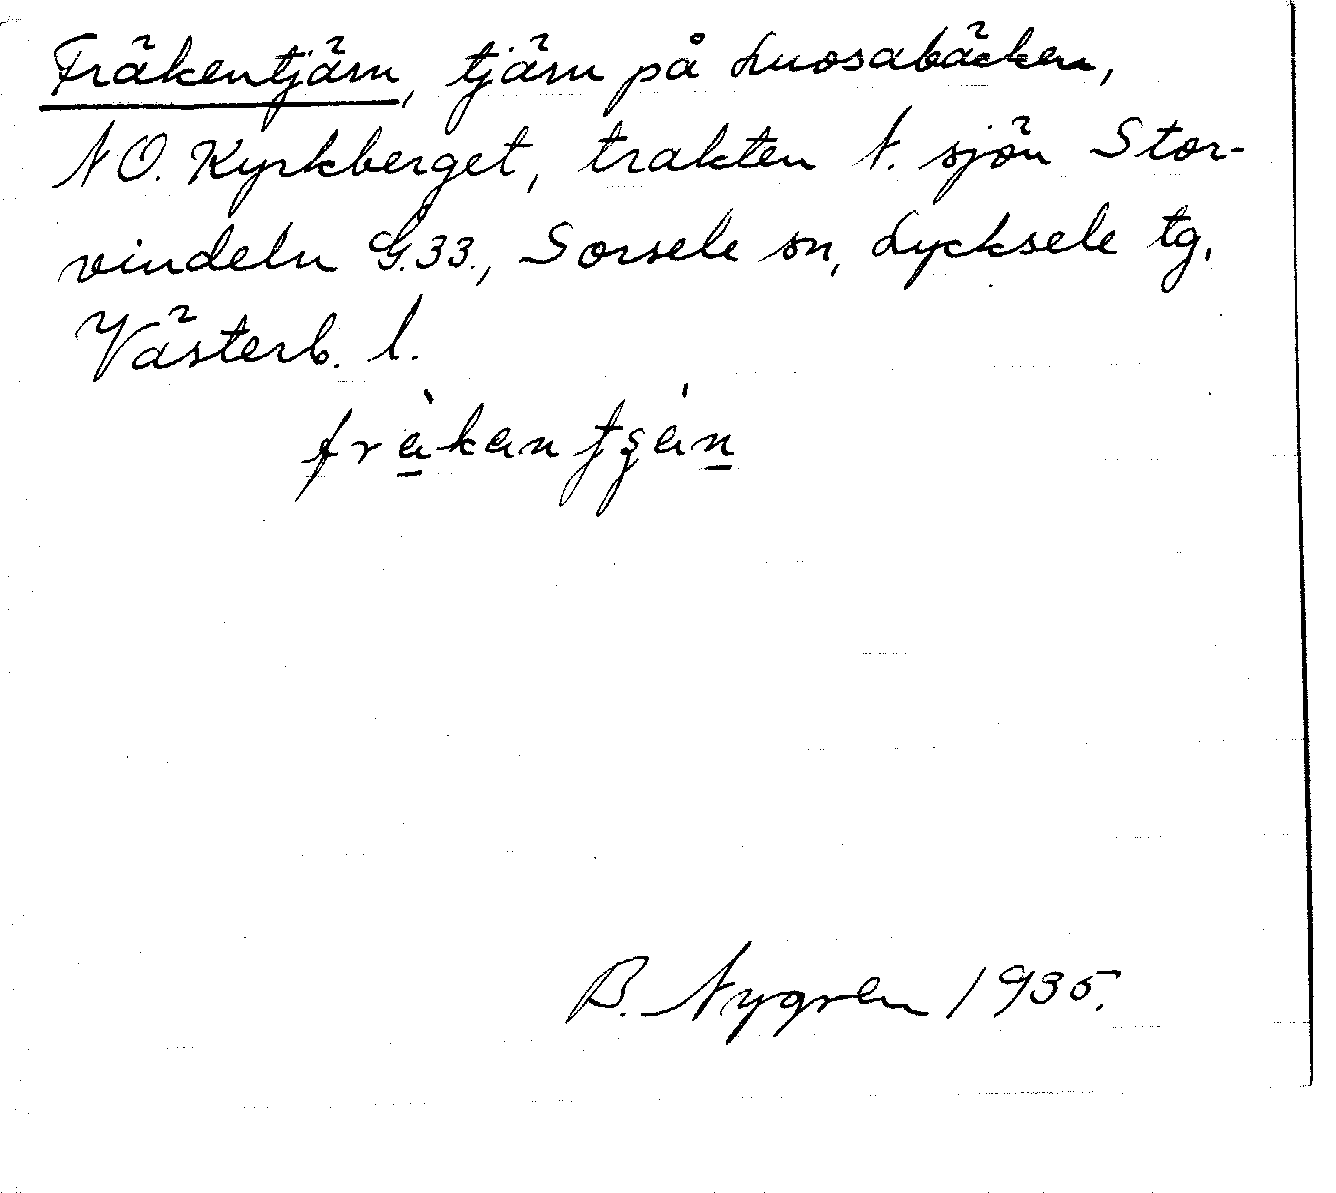 Fräkentjärn, tjärn på Luosabäcken,
NO. Kyrkberget, trakten N. sjön Stor-
vindeln G.33., Sorsele sn, Lycksele tg.
Västerb. l.
B. Nygren 1935.